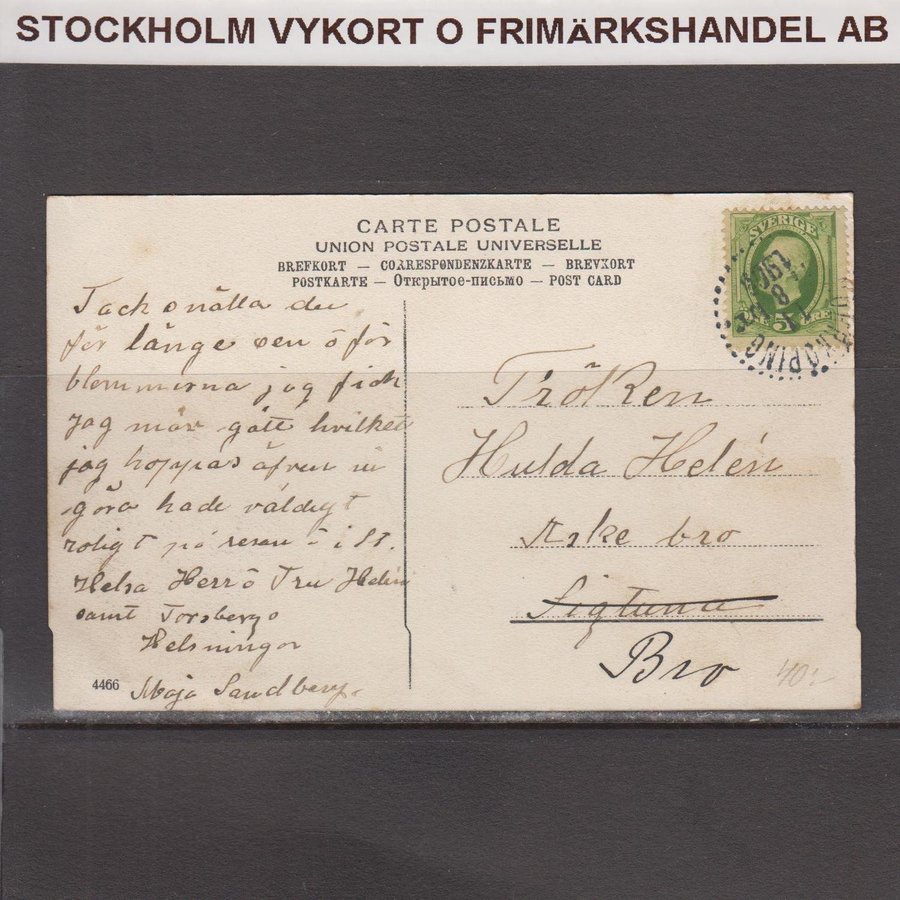 STOCKHOLM VYKORT O FRIMÄRKSHANDEL AB
CARTE POSTALE
UNION POSTALE UNIVERSELLE
BREFKORT — CORRESPONDENZKARTE — BREVKORT
POSTKARTE — Открытое-письмо — POST CARD
SVERIGE
5 ÖRE
KÖPING
8
Tack snälla du
för länge sen ö för
blommorna jag fick
jag mår gått hvilket
jag hoppas äfven ni
göra hade väldigt
roligt på resan i St.
Helsa Herr ö Fru Helén
samt Forsbergs
Helsningar
Maja Sandberg.
4466
Fröken
Hulda Helén
Aske bro
Sigtuna
Bro
40:-